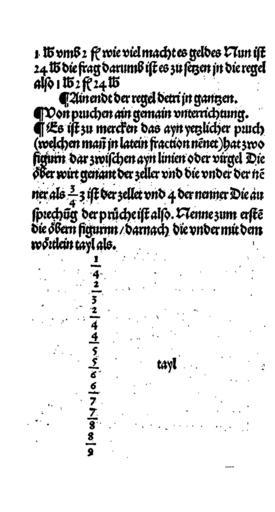 1 ℔ vmb 2 fl wie viel macht es geldes Nun ist
24 ℔ die frag darumb ist es zu setzen in die regel
also 1 ℔ 2 fl 24 ℔
¶ Ain endt der regel detri in gantzen.
¶ Von pruchen ain gemain vnterrichtung.
¶ Es ist zu mercken das ayn yetzlicher pruch
(welchen mañ in latein fraction nēnet) hat zwo
figurn dar zwischen ayn linien oder virgel Die
ober wirt genant der zeller vnd die vnder der nē
ner als 3/4 3 ist der zeller vnd 4 der nenner Die au
sprechūg der prüche ist also. Nenne zum erstē
die obern figurnn / darnach die vnder mit dem
wörtlein tayl als.
1
4
2
3
2
4
4
5
5 tayl
6
6
7
7
8
8
9